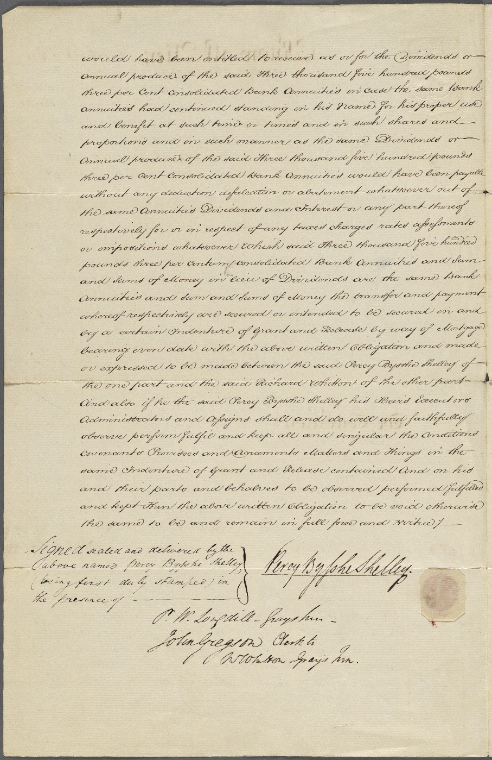 would have been entitled to receive as or for the Dividends or
Annual produce of the said three thousand five hundred pounds
three per Cent Consolidated Bank Annuities in case the same Bank
Annuities had continued standing in his Name for his proper use
and benefit at such time or times and in such shares and
proportions and in such manner as the same Dividends or
Annual produce of the said three thousand five hundred pounds
three per Cent Consolidated Bank Annuities would have been payable
without any deduction defalcation or abatement whatsoever out of
the same Annuities Dividends and Interest or any part thereof
respectively for or in respect of any taxes charges rates assessments
or impositions whatsoever Which said three thousand five hundred
pounds three per centum Consolidated Bank Annuities and Sum
and Sums of Money in lieu of Dividends are the same Bank
Annuities and Sum and Sums of Money the transfer and payment
whereof respectively are secured or intended to be secured in and
by a certain Indenture of Grant and Release by way of Mortgage
bearing even date with the above written Obligation and made
or expressed to be made between the said Percy Bysshe Shelley of
the one part and the said Richard of the other part
And also if he the said Percy Bysshe Shelley his Heirs Executors
Administrators and Assigns shall and do well and faithfully
observe perform fulfil and keep all and singular the Conditions
Covenants Provisoes and Agreements Matters and things in the
same Indenture of Grant and Release contained And on his
and their parts and behalves to be observed performed fulfilled
and kept Then the above written Obligation to be void otherwise
the same to be and remain in full force and virtue
Signed sealed and delivered by the
above named Percy Bysshe Shelley
(being first duly stamped) in
the presence of
Percy Bysshe Shelley.
P. W. Longdill - Grays Inn -
John Gregson Clerk to
Grays Inn.